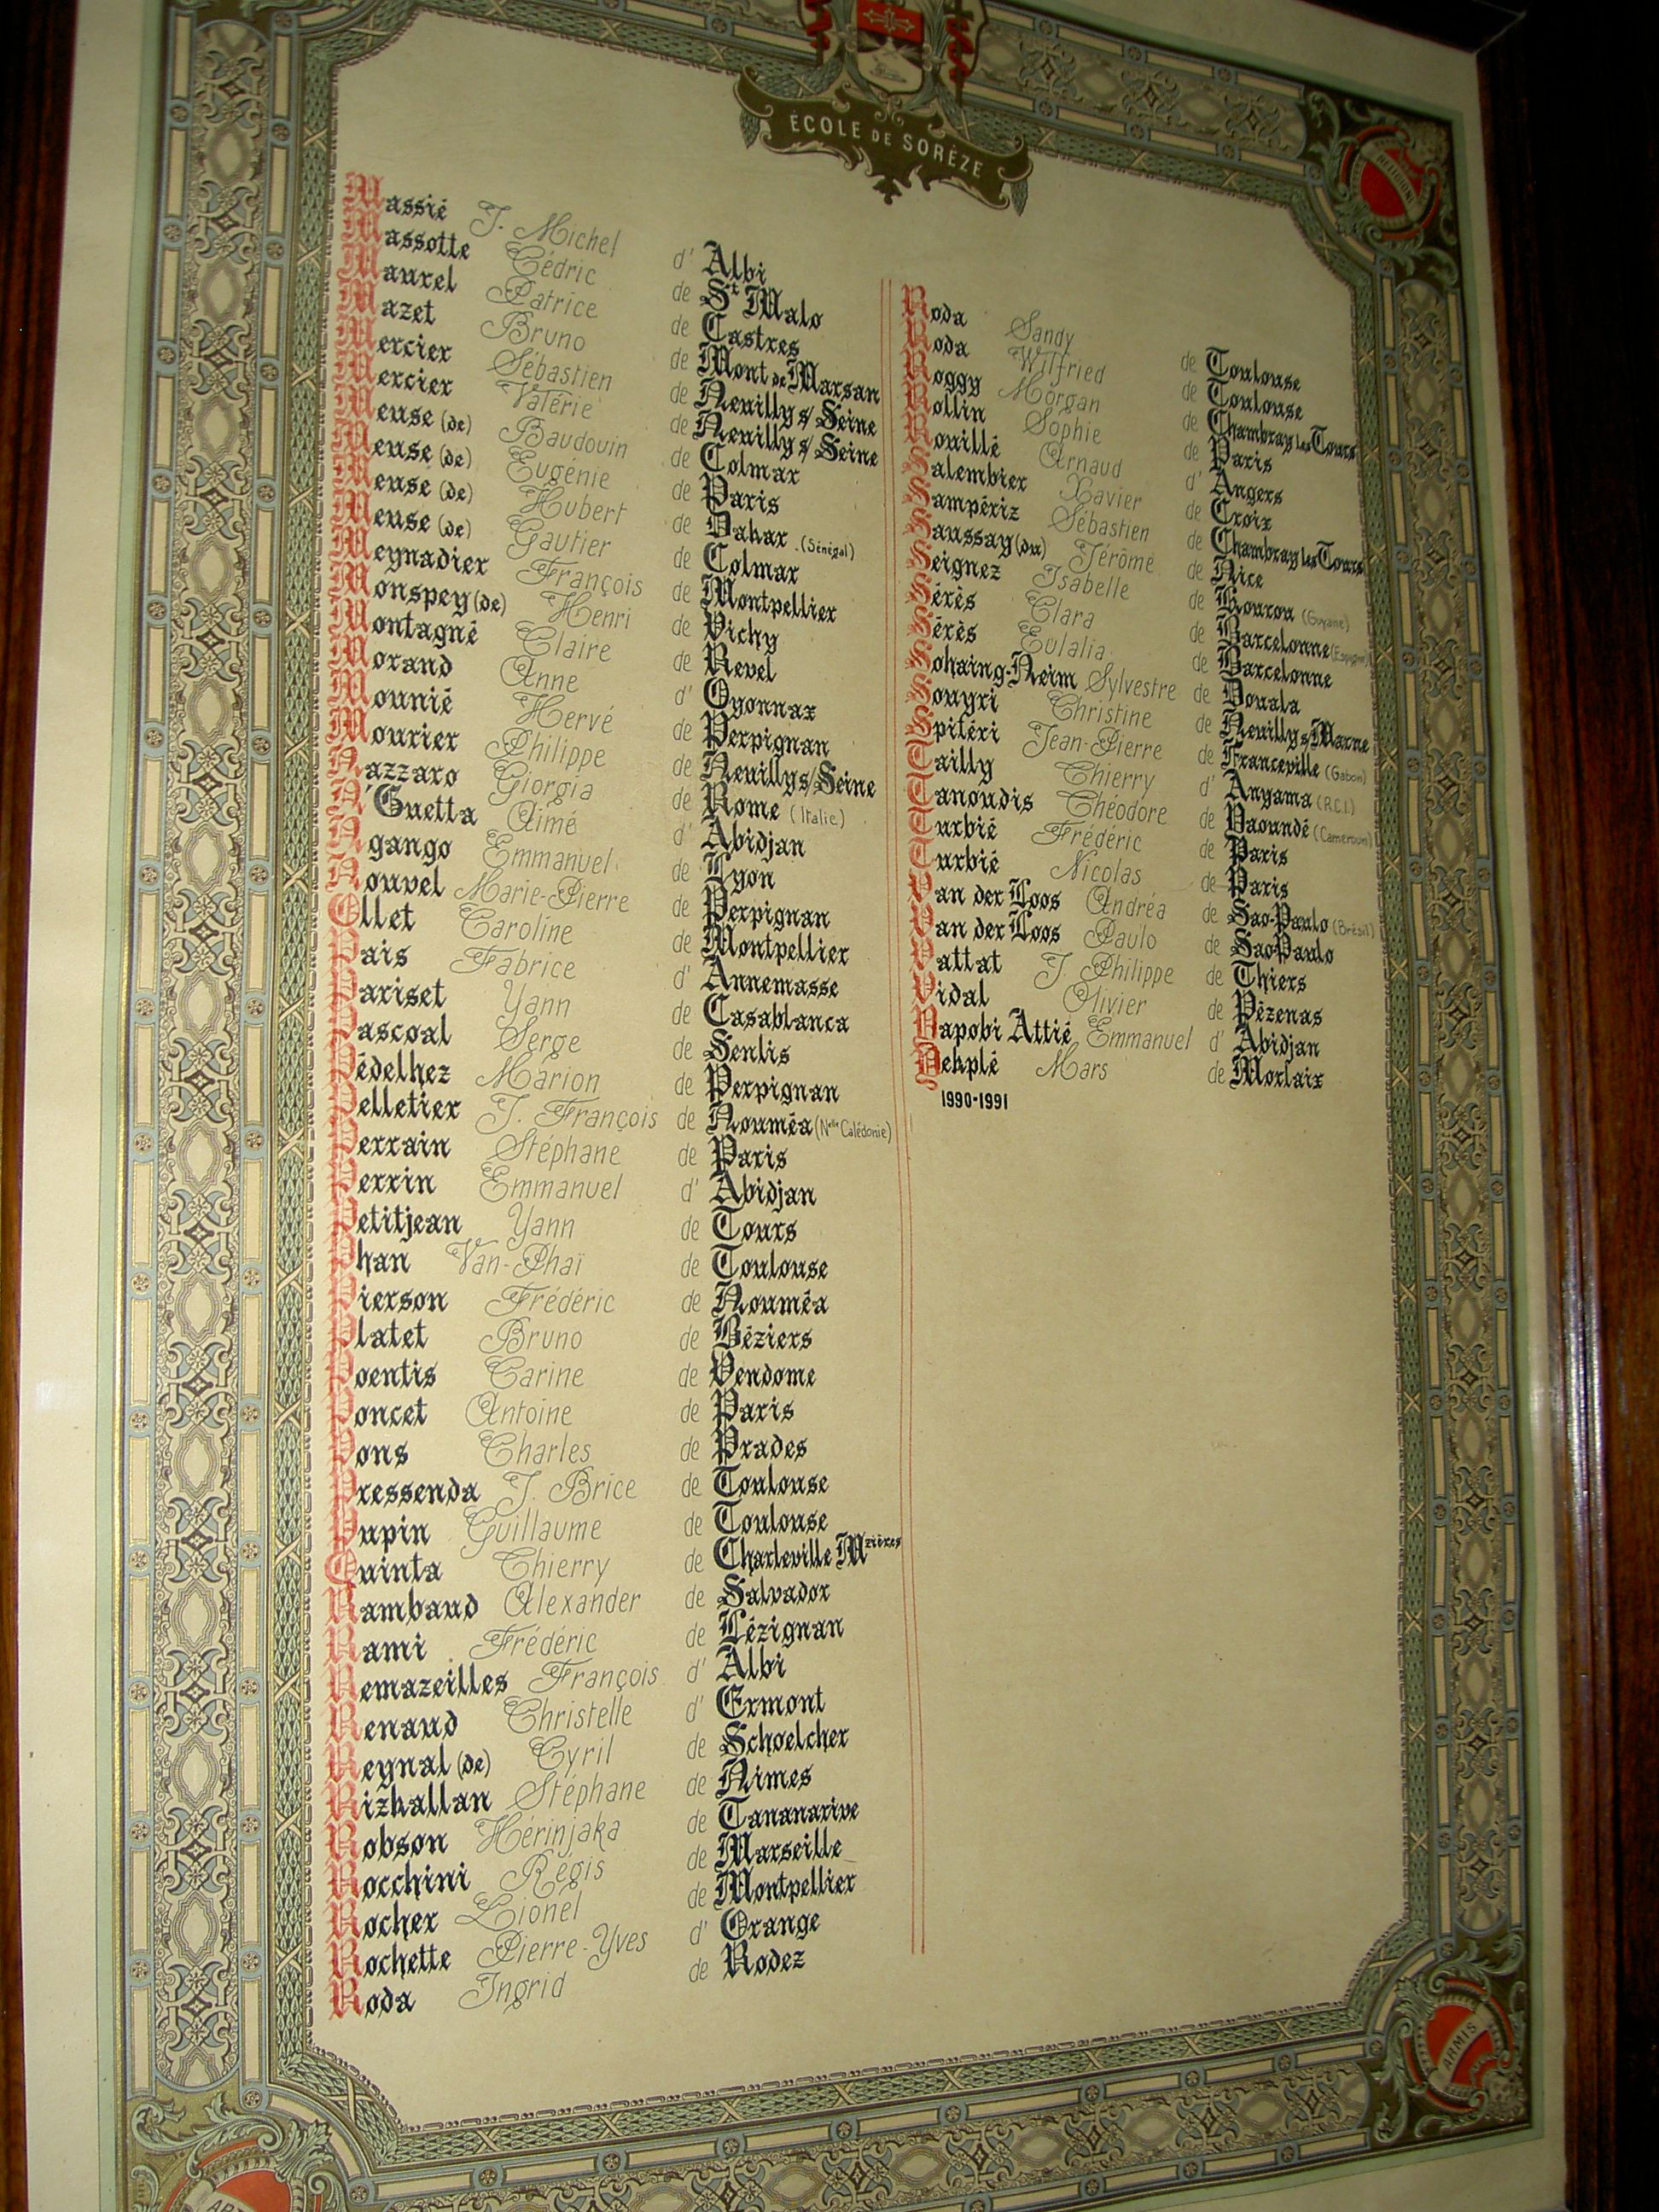 ÉCOLE DE SORÈZE
RELIGIONI
Massié J. Michel d' Albi
Massotte Cédric de St Malo
Maurel Patrice de Castres
Mazet Bruno de Mont de Marsan
Mercier Sébastien de Neuilly s/ Seine
Mercier Valérie de Neuilly s/ Seine
Meuse (de) Baudouin de Colmar
Meuse (de) Eugénie de Paris
Meuse (de) Hubert de Dakar (Sénégal)
Meuse (de) Gautier de Colmar
Meynadier François de Montpellier
Monspey (de) Henri de Vichy
Montagné Claire de Revel
Morand Anne d' Oyonnax
Mounié Hervé de Perpignan
Mourier Philippe de Neuilly s/ Seine
Nazzaro Giorgia de Rome (Italie)
N'Guetta Aimé d' Abidjan
Ngango Emmanuel de Lyon
Nouvel Marie-Pierre de Perpignan
Ollet Caroline de Montpellier
Pais Fabrice d' Annemasse
Pariset Yann de Casablanca
Pascoal Serge de Senlis
Pédelhez Marion de Perpignan
Pelletier J. François de Nouméa (Nelle Calédonie)
Perrain Stéphane de Paris
Perrin Emmanuel d' Abidjan
Petitjean Yann de Tours
Phan Van-Phaï de Toulouse
Pierson Frédéric de Nouméa
Platet Bruno de Béziers
Poentis Carine de Vendome
Poncet Antoine de Paris
Pons Charles de Prades
Pressenda J. Brice de Toulouse
Pupin Guillaume de Toulouse
Quinta Thierry de Charleville Mzières
Rambaud Alexander de Salvador
Rami Frédéric de Lézignan
Remazeilles François d' Albi
Renaud Christelle d' Ermont
Reynal (de) Cyril de Schoelcher
Rizkallan Stéphane de Nimes
Robson Hérinjaka de Tananarive
Rocchini Régis de Marseille
Rocher Lionel de Montpellier
Rochette Pierre-Yves d' Orange
Roda Ingrid de Rodez
Roda Sandy de Toulouse
Roda Wilfried de Toulouse
Roggy Morgan de Chambray les Tours
Rollin Sophie de Paris
Rouillé Arnaud d' Angers
Salembier Xavier de Croix
Sampériz Sébastien de Chambray les Tours
Saussay (du) Jérôme de Nice
Seignez Isabelle de Kourou (Guyane)
Sérès Clara de Barcelonne (Espagne)
Sérès Eulalia de Barcelonne
Sohaing-Neim Sylvestre de Douala
Souyri Christine de Neuilly s/ Marne
Spitéri Jean-Pierre de Franceville (Gabon)
Tailly Thierry d' Anyama (R.C.I.)
Tanoudis Théodore de Yaoundé (Cameroun)
Turbié Frédéric de Paris
Turbié Nicolas de Paris
Van der Loos Andréa de Sao-Paulo (Brésil)
Van der Loos Paulo de Sao Paulo
Vattat J. Philippe de Thiers
Vidal Olivier de Pézenas
Yapobi Attié Emmanuel d' Abidjan
Yehplé Mars de Morlaix
1990-1991
ARMIS